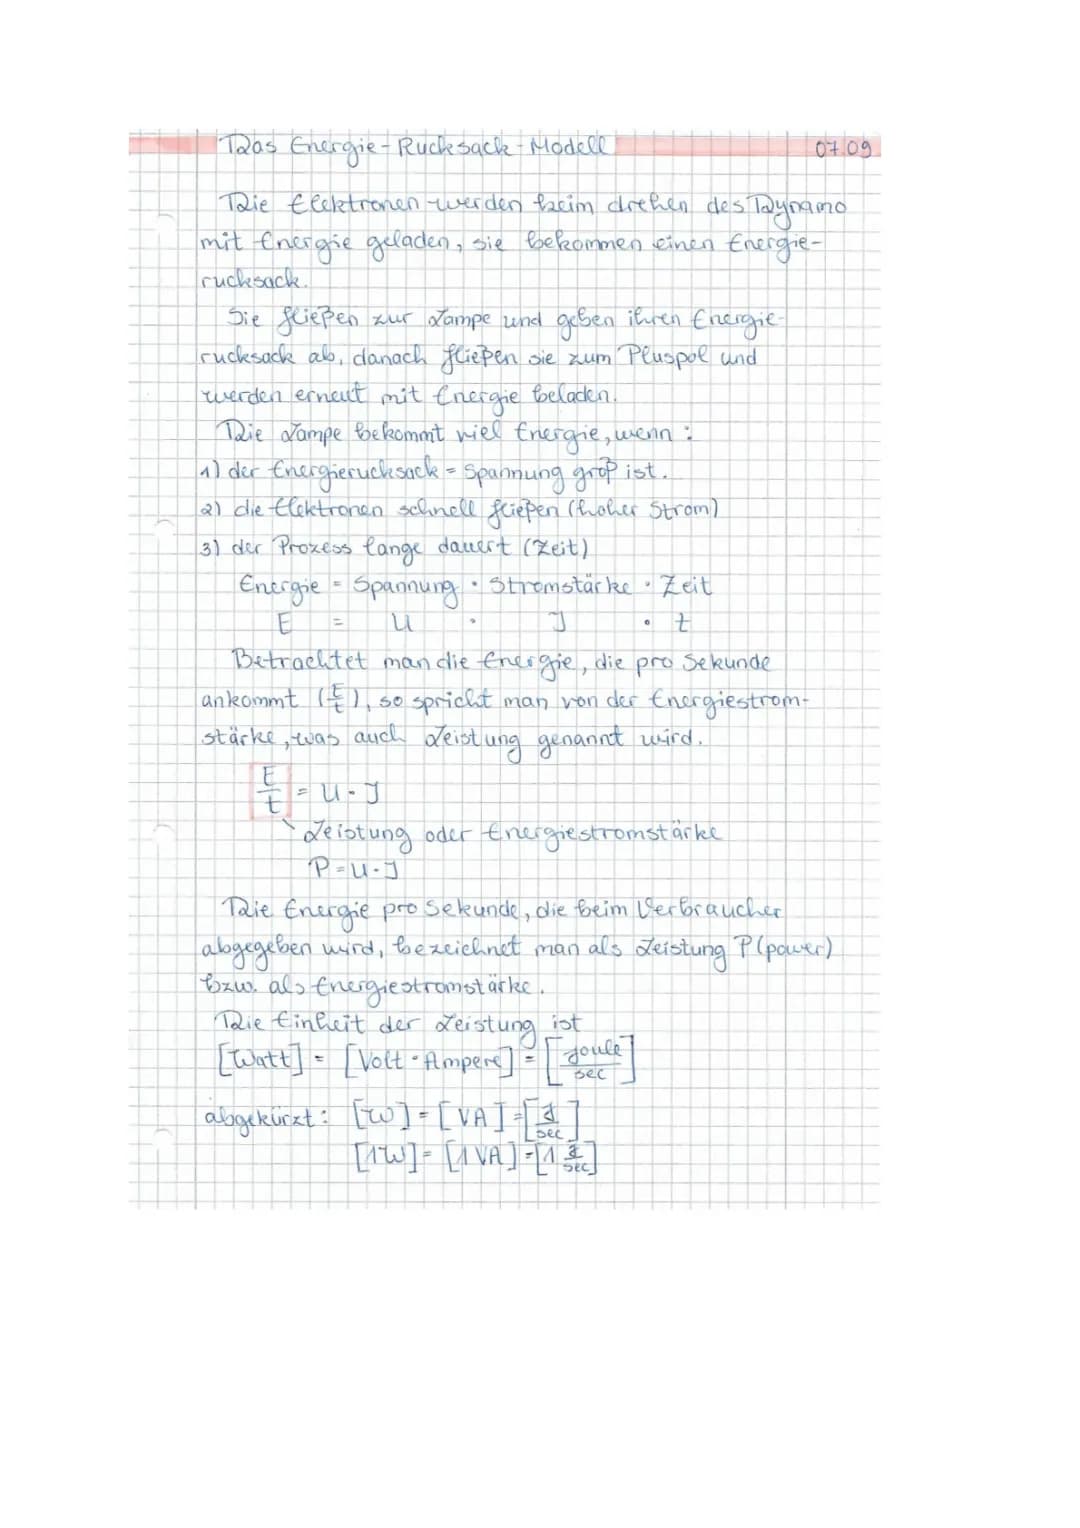 Das Energie-Rucksack-Modell 07.09
Die Elektronen werden beim drehen des Dynamo
mit Energie geladen, sie bekommen einen Energie-
rucksack.
Sie fließen zur Lampe und geben ihren Energie-
rucksack ab, danach fließen sie zum Pluspol und
werden erneut mit Energie beladen.
Die Lampe bekommt viel Energie, wenn :
1) der Energierucksack = Spannung groß ist.
2) die Elektronen schnell fließen (hoher Strom)
3) der Prozess lange dauert (Zeit)
Energie = Spannung · Stromstärke · Zeit
E = U · I · t
Betrachtet man die Energie, die pro Sekunde
ankommt (E/t), so spricht man von der Energiestrom-
stärke, was auch Leistung genannt wird.
E/t = U · I
Leistung oder Energiestromstärke
P = U · I
Die Energie pro Sekunde, die beim Verbraucher
abgegeben wird, bezeichnet man als Leistung P (power)
bzw. als Energiestromstärke.
Die Einheit der Leistung ist
[Watt] = [Volt · Ampere] = [Joule/sec]
abgekürzt: [W] = [VA] = [J/sec]
[1W] = [1VA] = [1 J/sec]